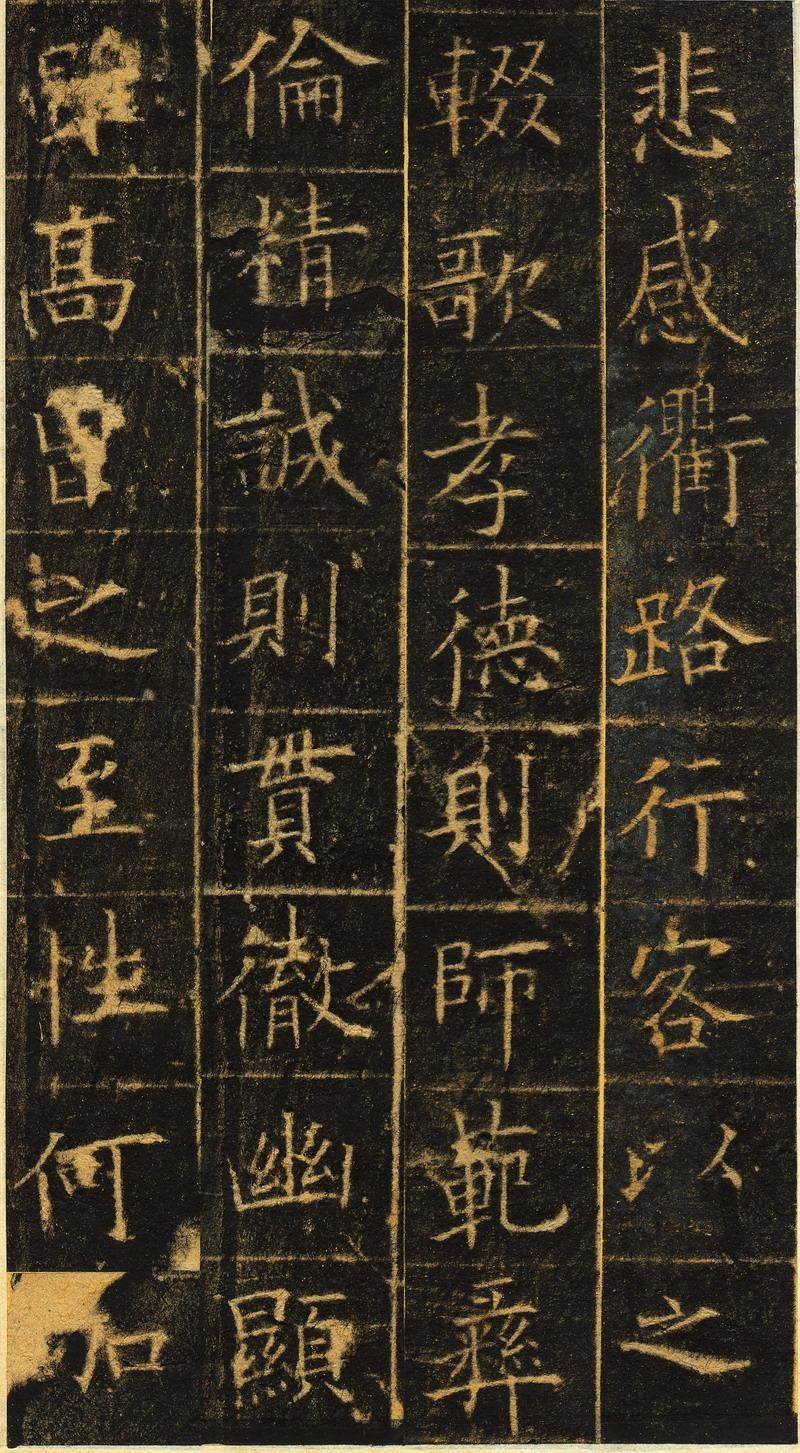 悲感衢路行客以之
輟歌孝德則師範彝
倫精誠則貫徹幽顯
雖高曾之至性何加